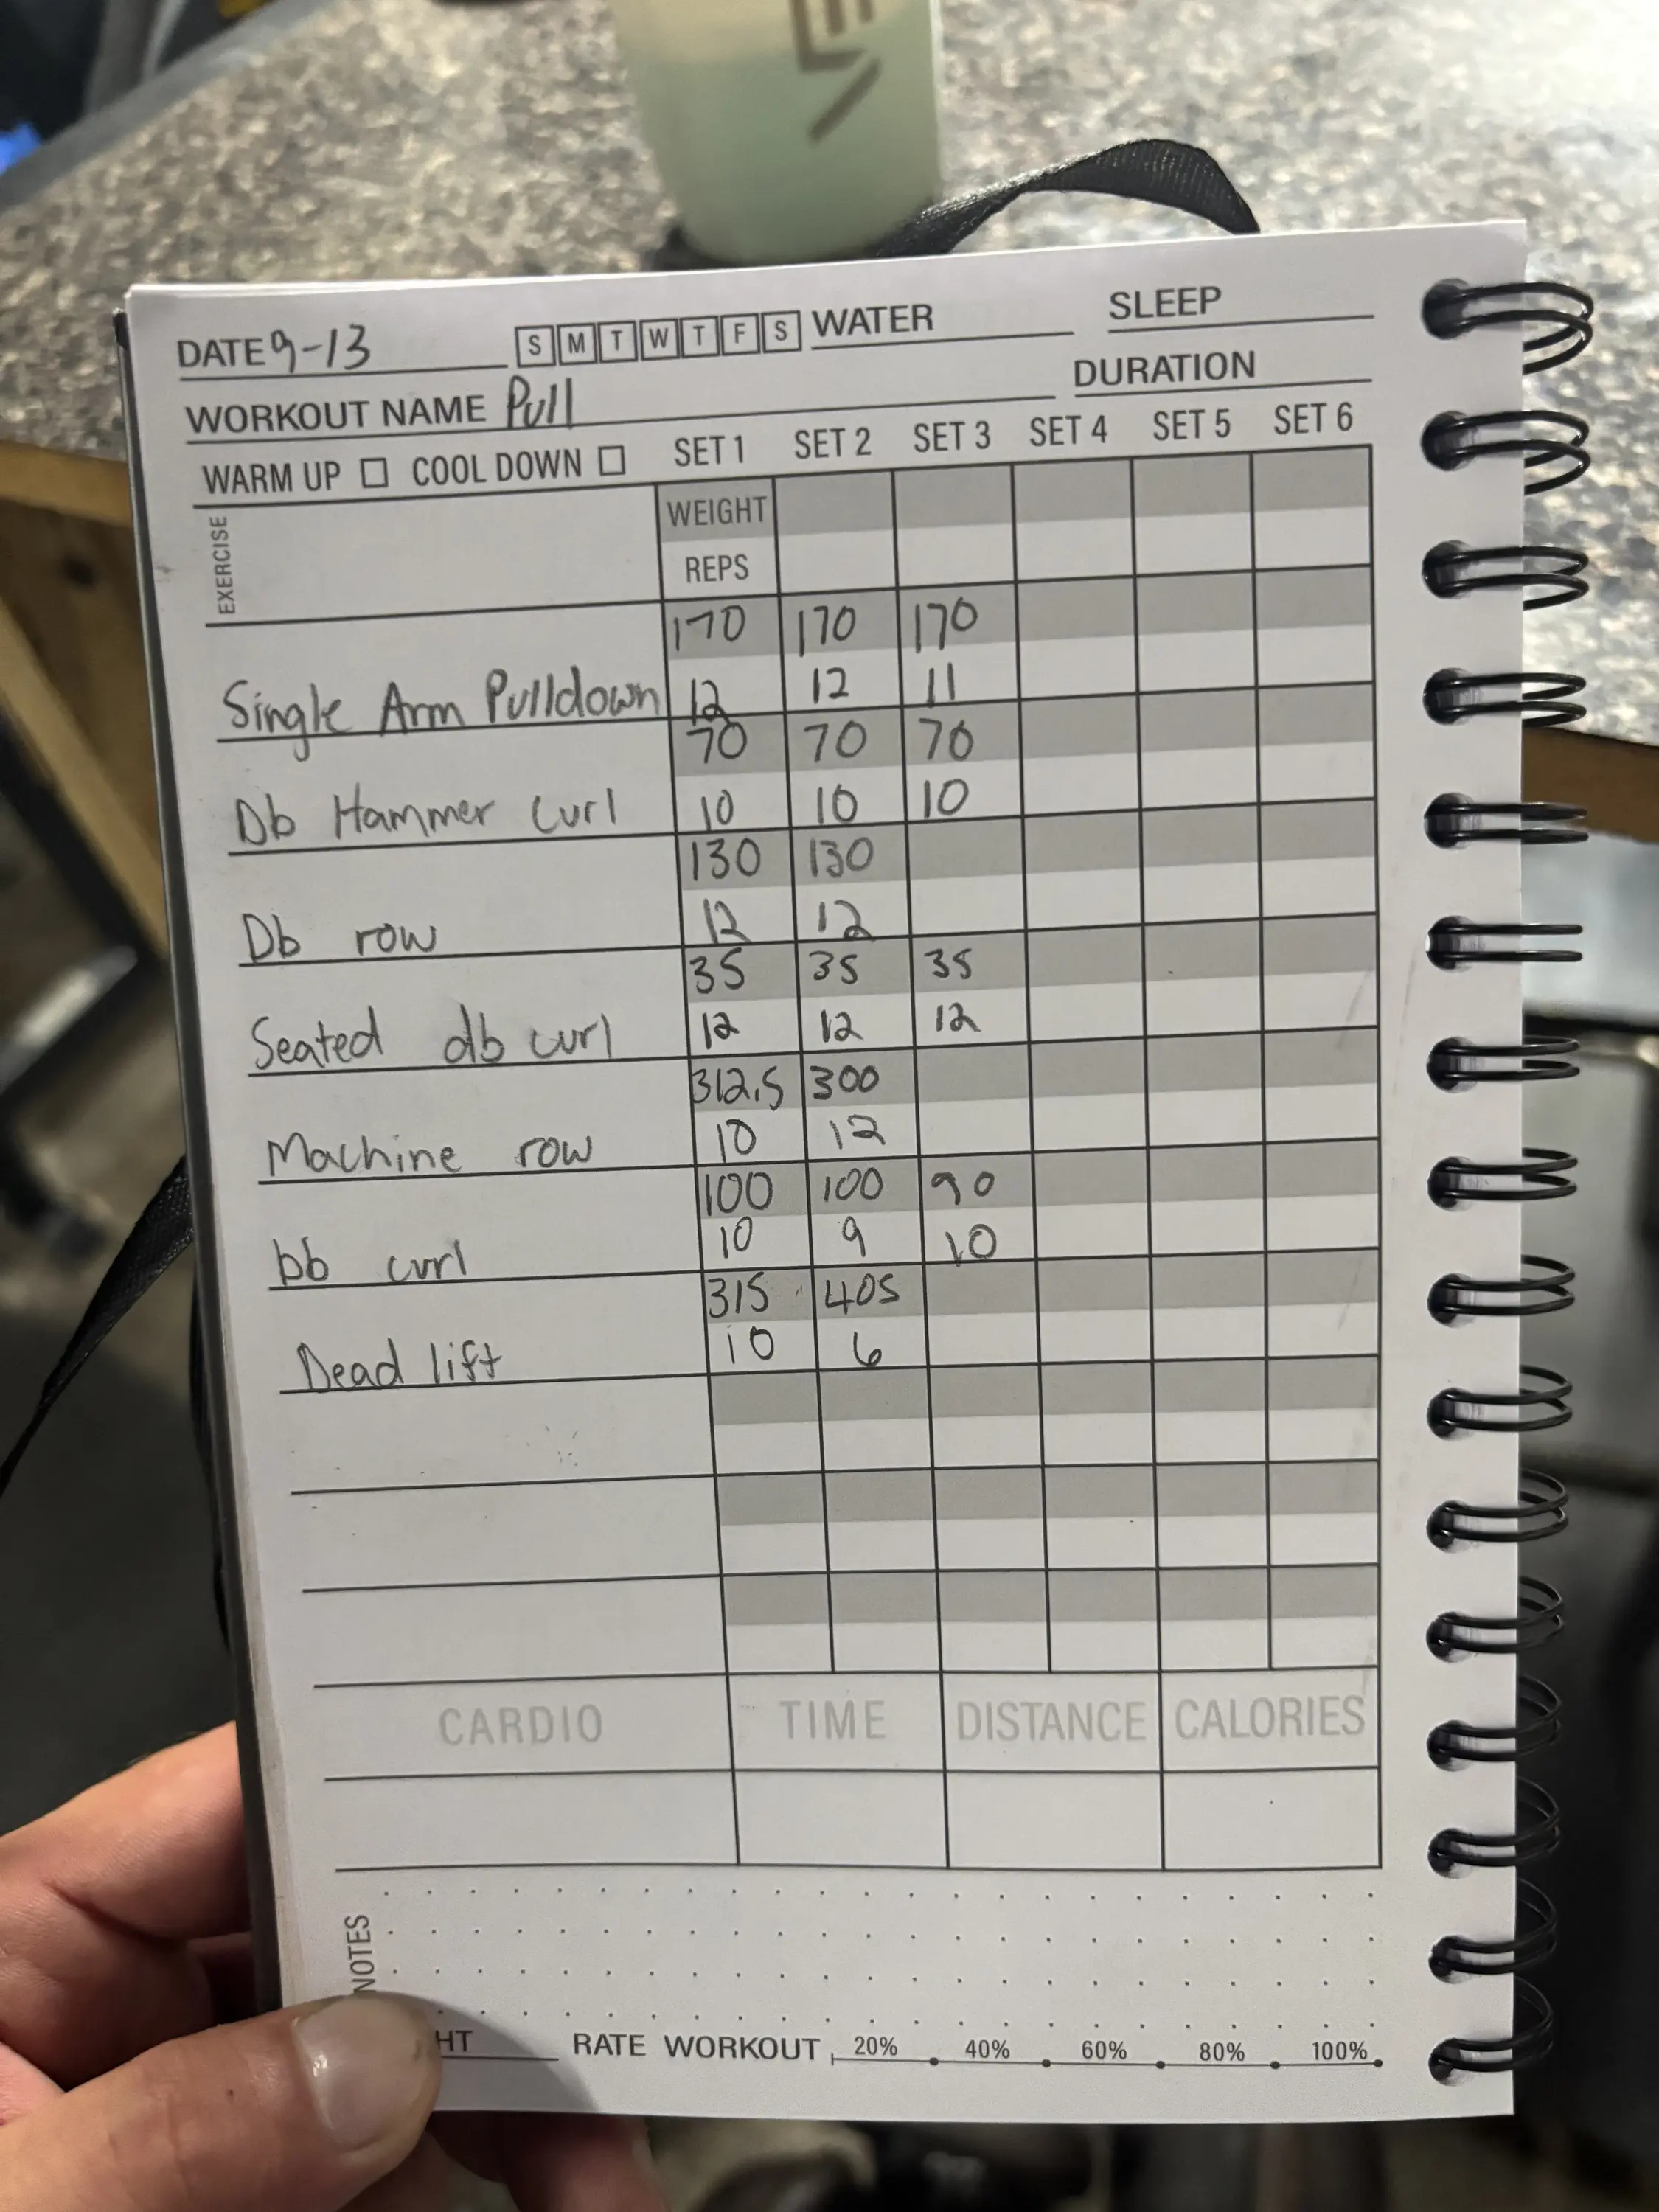 DATE 9-13 S M T W T F S WATER SLEEP
WORKOUT NAME Pull DURATION
WARM UP COOL DOWN SET 1 SET 2 SET 3 SET 4 SET 5 SET 6
EXERCISE
WEIGHT
REPS
170 170 170
Single Arm Pulldown 12 12 11
70 70 70
Db Hammer Curl 10 10 10
130 130
Db row 12 12
35 35 35
Seated db curl 12 12 12
312.5 300
Machine row 10 12
100 100 90
bb curl 10 9 10
315 405
Dead lift 10 6
CARDIO TIME DISTANCE CALORIES
NOTES
HT RATE WORKOUT 20% 40% 60% 80% 100%